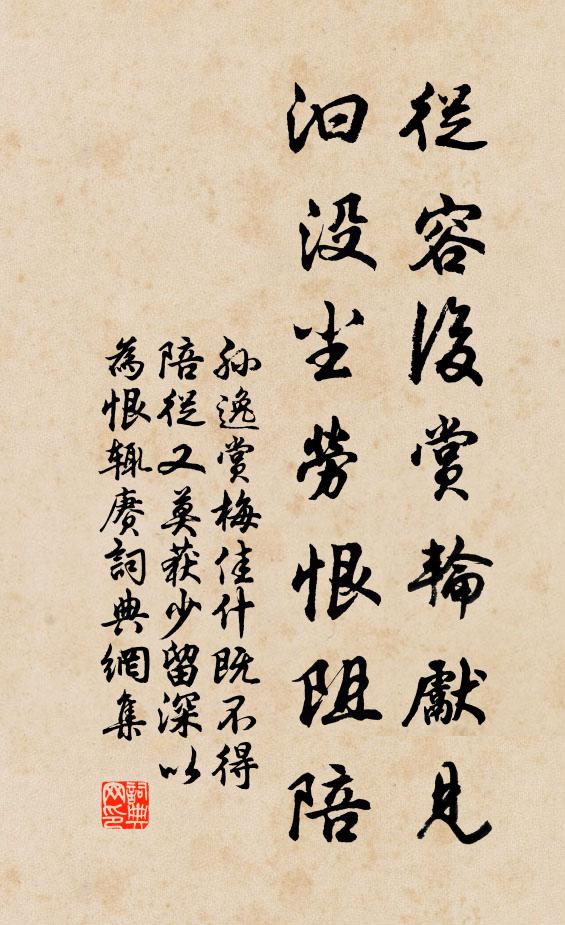 從容後賞輪獻見
汩没尘勞恨阻陪
孙逸赏梅佳什既不得
陪從又莫获少留深以
為恨辄赓詞典網集
詞典网印